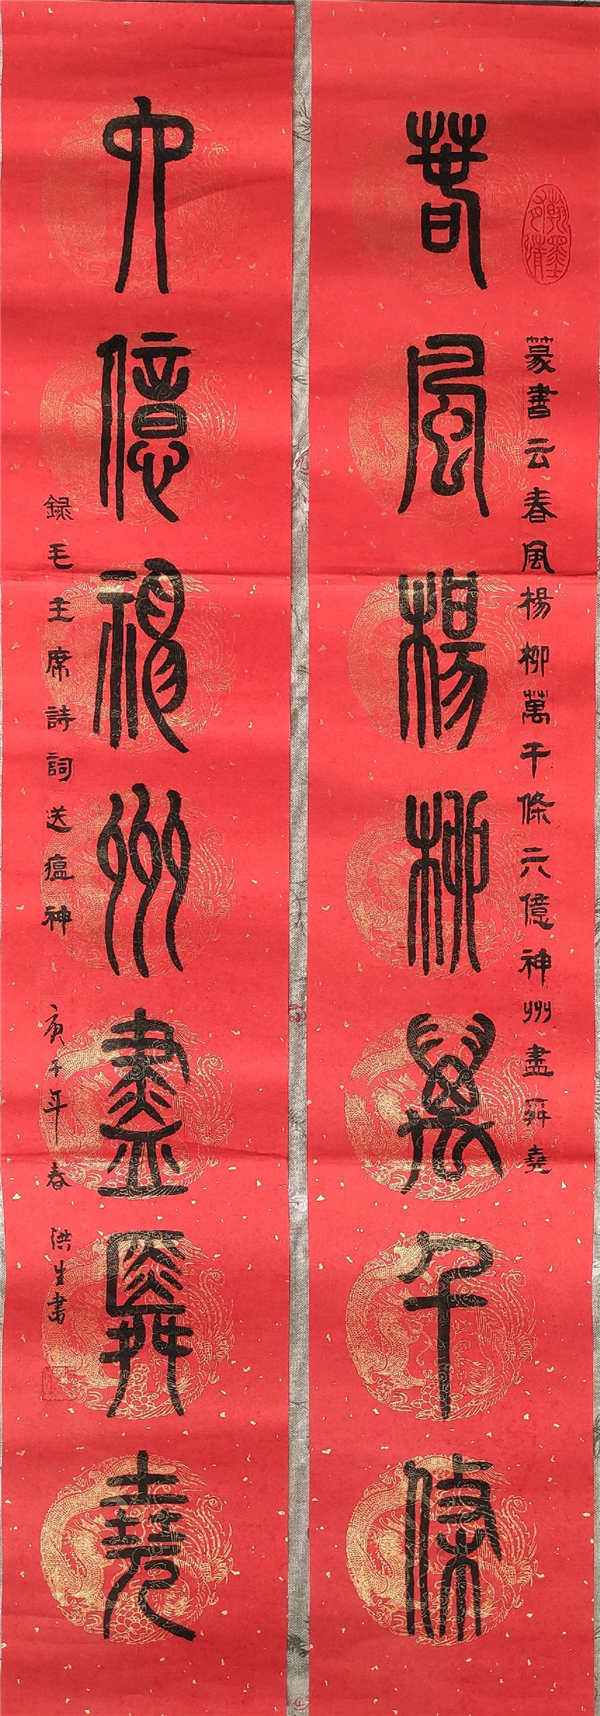 春風楊柳萬千條
六億神州盡舜堯
篆書云春風楊柳萬千條六億神州盡舜堯
録毛主席詩詞送瘟神
庚子年春
洪生書